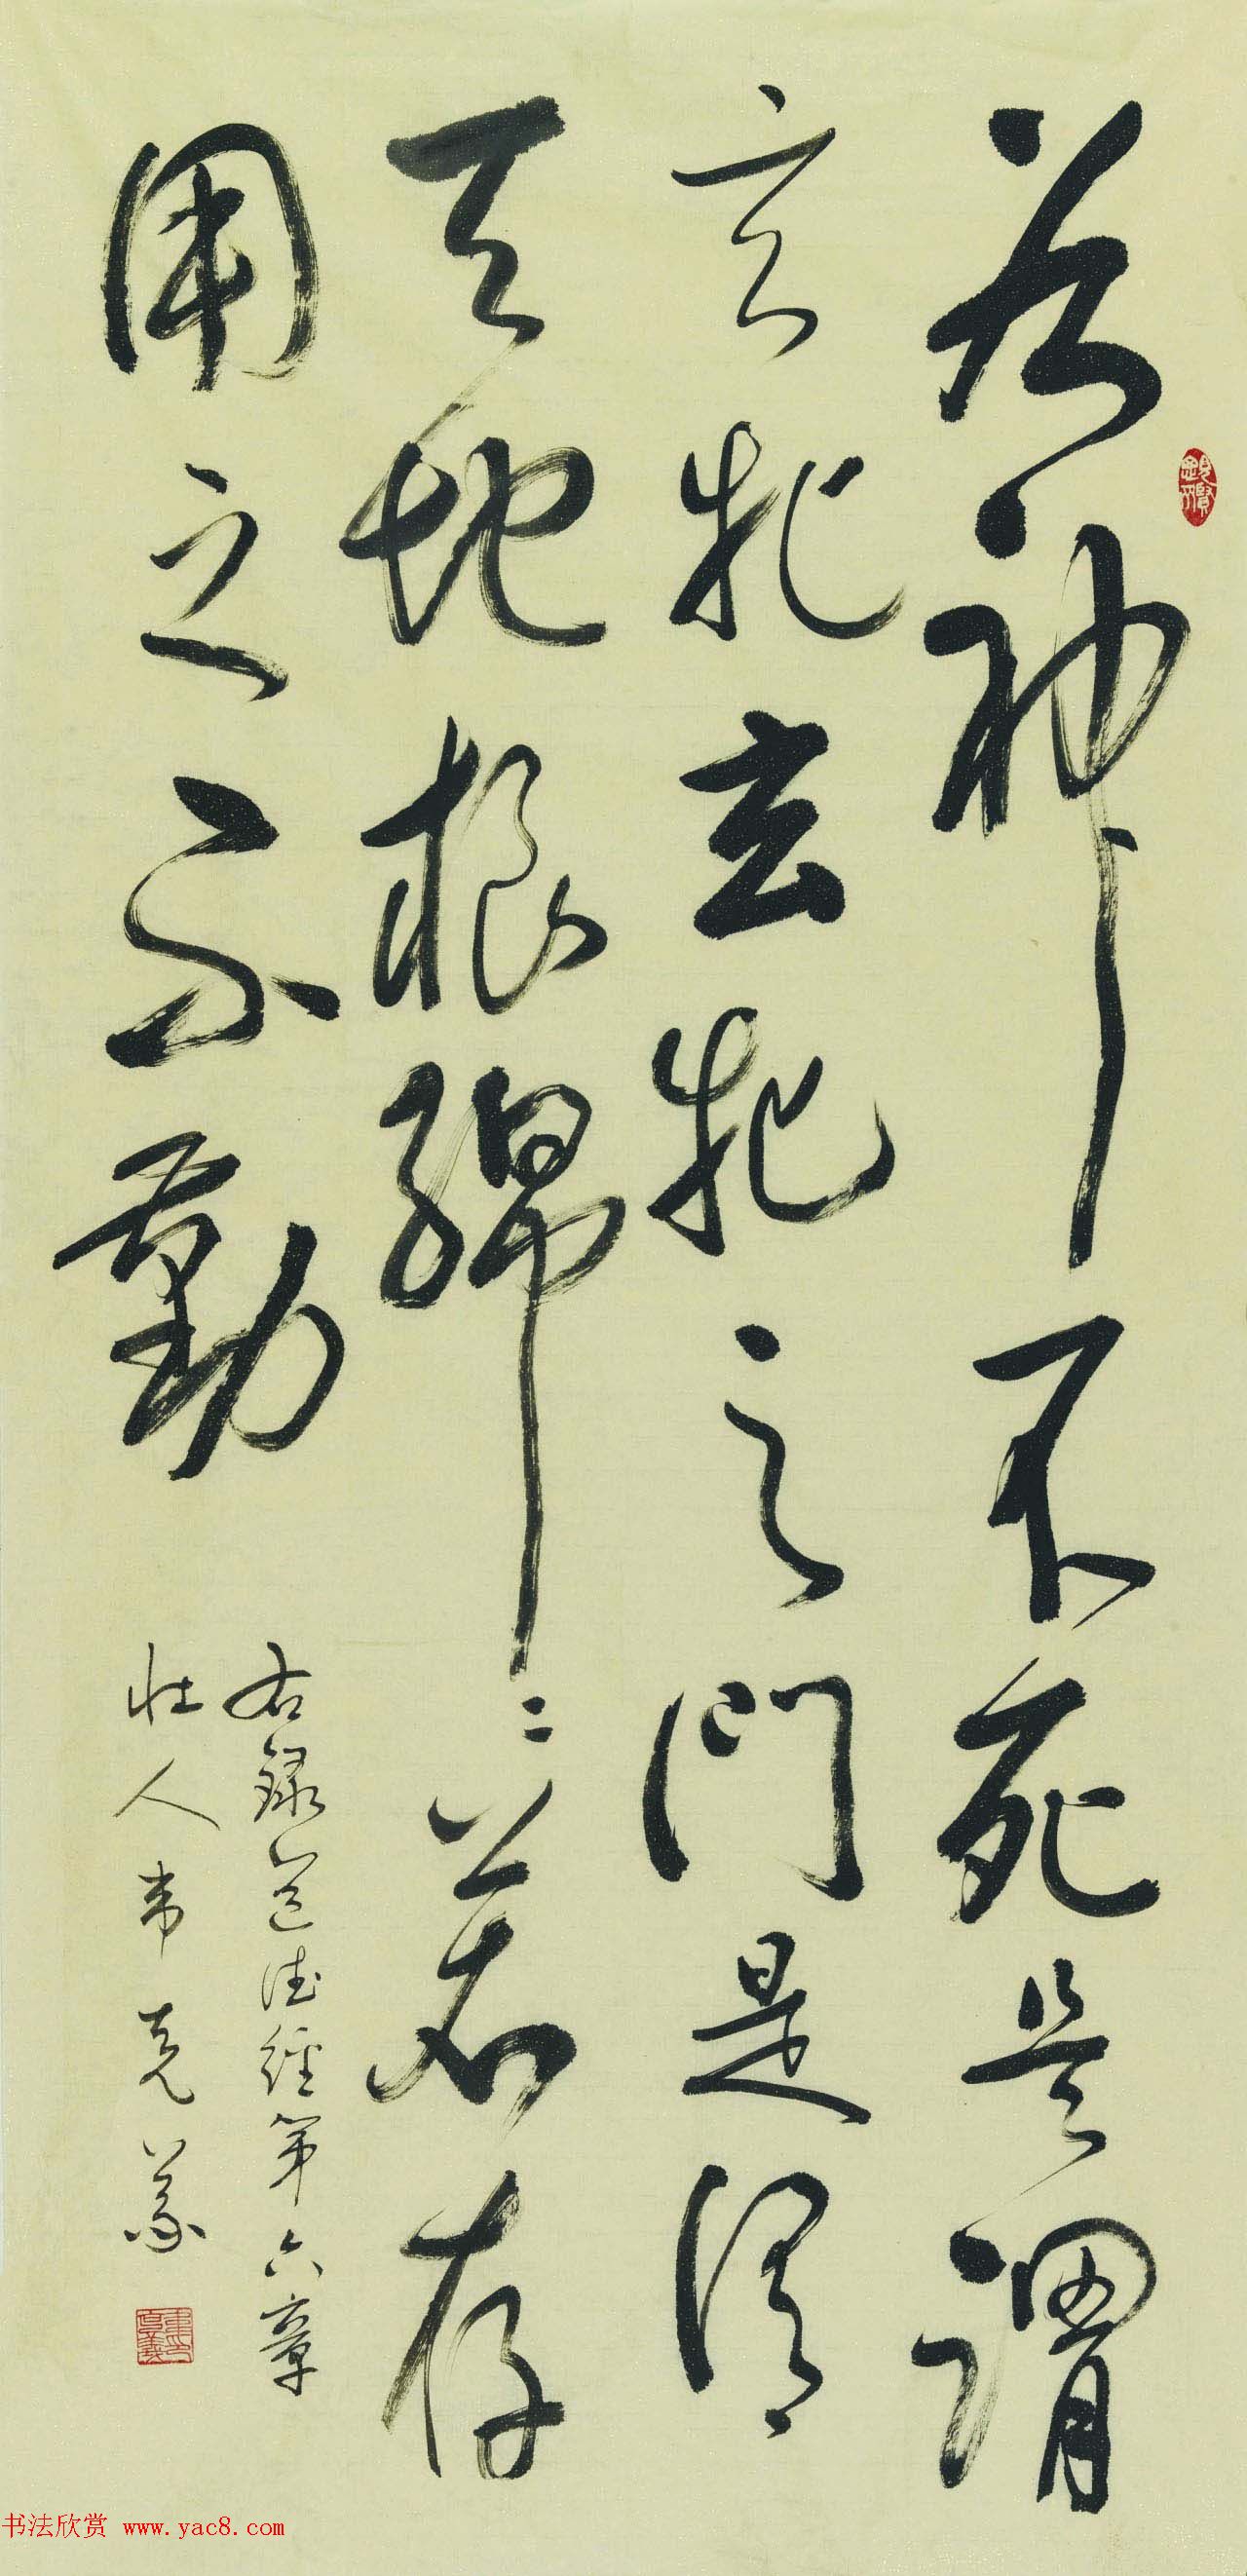 谷神不死是謂
玄牝玄牝之門是謂
天地根綿綿若存
用之不勤
右錄道德經第六章
壯人韋克義
书法欣赏 www.yac8.com